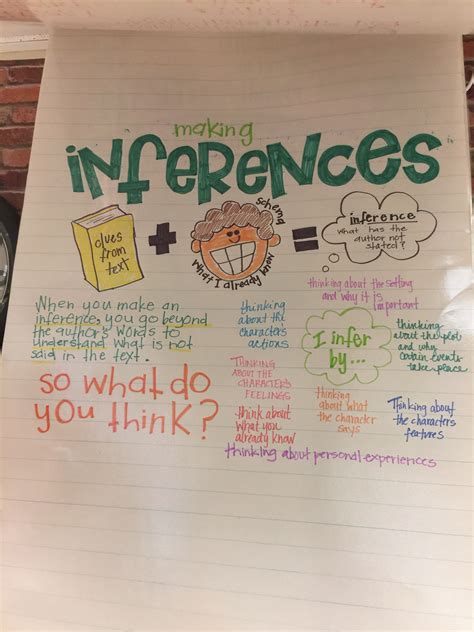 making
INFERENCES
clues
from
text
+
schema
what I already know
=
inference
what has the
author not
stated?
When you make an
inference, you go beyond
the author's words to
understand what is not
said in the text.
so what do
you think?
thinking
about the
characters
actions
thinking about the setting
and why it is
important
I infer
by...
thinking
about the plot
and why
certain events
take place
THINKING
ABOUT THE
CHARACTER'S
FEELINGS
think about
what you
already know
thinking
about what
the character
says
Thinking about
the characters
features
thinking about personal experiences